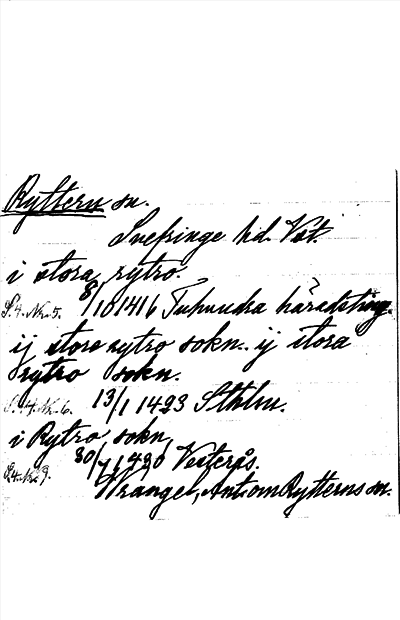 Ryttern sn.
Snefringe hd. Vst.
i stora rytro.
S.4. Nr. 5. 8/10 1416 Tuhundra häradsting.
ij store rytro sokn. ij stora
rytro sokn.
S.4. Nr. 6. 13/1 1423 Sthlm.
i Rytro sokn,
S.4. Nr. 9. 30/7 1430 Vesterås.
Wrangel, Ant. om Rytterns sn.